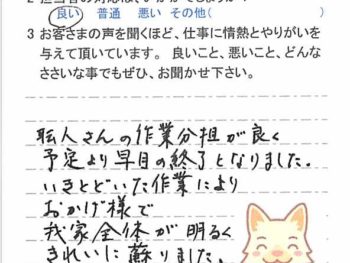 良い 普通 悪い その他(　　　　)
3 お客さまの声を聞くほど、仕事に情熱とやりがいを
与えて頂いています。 良いこと、悪いこと、どんな
ささいな事でもぜひ、お聞かせ下さい。
職人さんの作業分担が良く
予定より早目の終了となりました。
いきとどいた作業により
おかげ様で
我家全体が明るく
きれいに蘇りました。